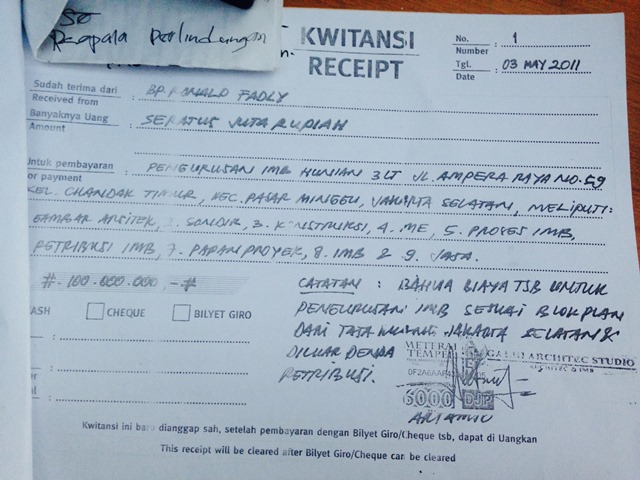 SK
Kepala Perlindungan
KWITANSI
RECEIPT
No. : 1
Number
Tgl. : 03 MAY 2011
Date
Sudah terima dari : BP. RONALD FADLY
Received from
Banyaknya Uang : SERATUS JUTA RUPIAH
Amount
Untuk pembayaran : PENGURUSAN IMB HUNIAN 3 LT JL. AMPERA RAYA NO. 59
or payment
KEL. CILANDAK TIMUR, KEC. PASAR MINGGU, JAKARTA SELATAN, MELIPUTI:
GAMBAR ARSITEK, 2. SONDIR, 3. KONSTRUKSI, 4. ME, 5. PROSES IMB,
RETRIBUSI IMB, 7. PAPAN PROYEK, 8. IMB & 9. JASA.
# 100.000.000,- #
CATATAN : BAHWA BIAYA TSB UNTUK
PENGURUSAN IMB SESUAI BLOKPLAN
DARI TATA RUANG JAKARTA SELATAN &
DILUAR DENDA
RETRIBUSI.
ASH CHEQUE BILYET GIRO
METERAI
TEMPEL
ARCHITEC STUDIO
ARCHITEC & IMB
6000 DJP
Kwitansi ini baru dianggap sah, setelah pembayaran dengan Bilyet Giro/Cheque tsb, dapat di Uangkan
This receipt will be cleared after Bilyet Giro/Cheque can be cleared